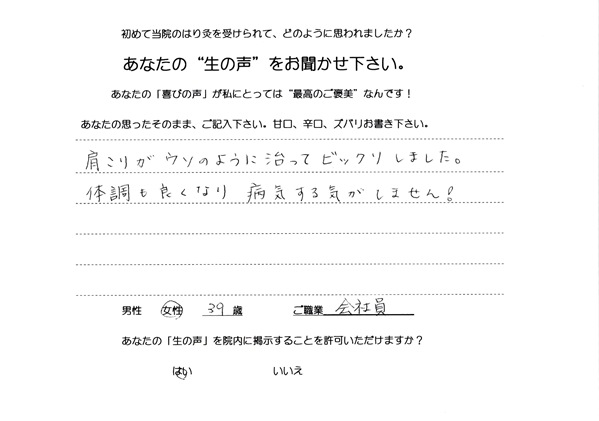 初めて当院のはり灸を受けられて、どのように思われましたか？
あなたの“生の声”をお聞かせ下さい。
あなたの「喜びの声」が私にとっては“最高のご褒美”なんです！
あなたの思ったそのまま、ご記入下さい。甘口、辛口、ズバリお書き下さい。
肩こりがウソのように治ってビックリしました。
体調も良くなり 病気する気がしません!
男性 女性 39 歳 ご職業 会社員
あなたの「生の声」を院内に掲示することを許可いただけますか？
はい いいえ